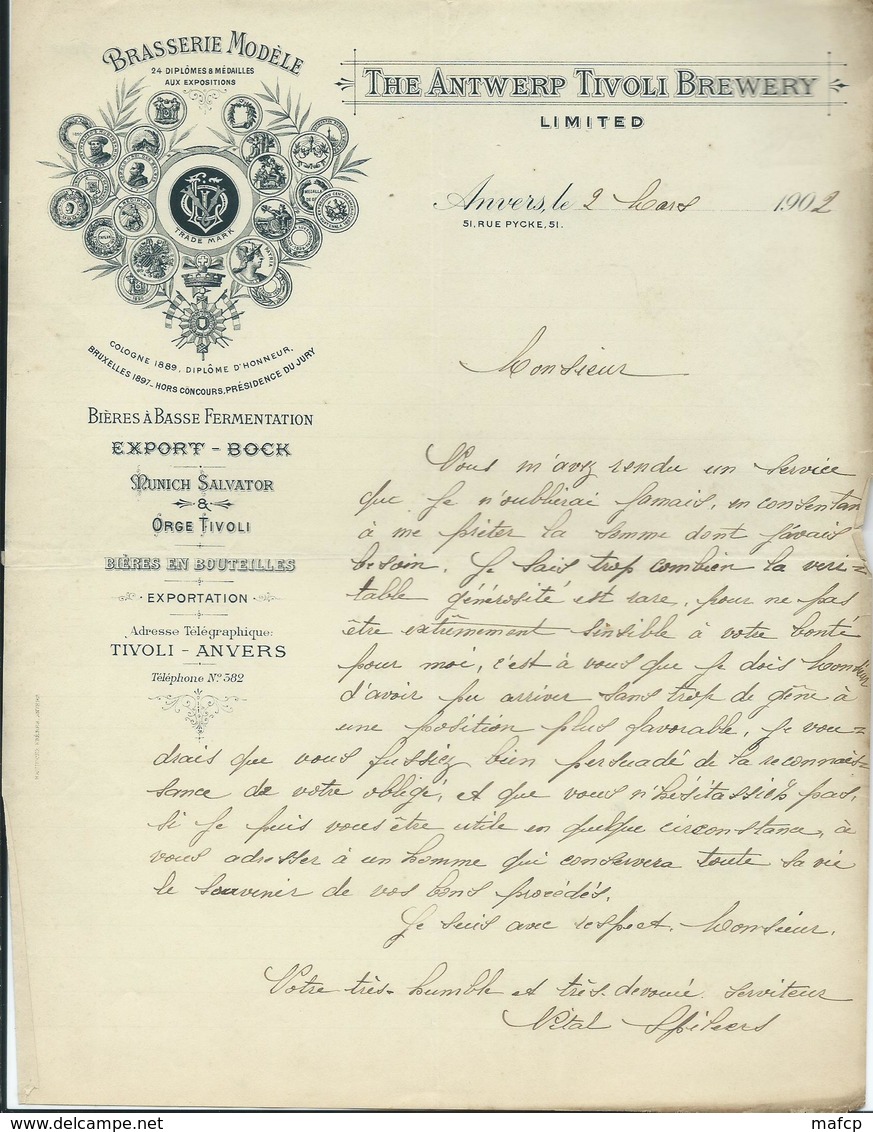 BRASSERIE MODÈLE
24 DIPLÔMES & MÉDAILLES
AUX EXPOSITIONS
TRADE MARK
PATRIA
COLOGNE 1889, DIPLÔME D'HONNEUR,
BRUXELLES 1897_HORS CONCOURS, PRÉSIDENCE DU JURY
BIÈRES À BASSE FERMENTATION
EXPORT - BOCK
MUNICH SALVATOR
&
ORGE TIVOLI
BIÈRES EN BOUTEILLES
EXPORTATION
Adresse Télégraphique:
TIVOLI - ANVERS
Téléphone Nº 582
THE ANTWERP TIVOLI BREWERY
LIMITED
Anvers, le 2 Mars 1902
51, RUE PYCKE, 51.
Monsieur
Vous m'avez rendu un service
que je n'oublierai jamais, en consentan
à me prêter la somme dont j'avais
besoin. Je sais trop combien la veri=
table générosité est rare, pour ne pas
être extrêmement sensible à votre bonté
pour moi, c'est à vous que je dois
d'avoir pu arriver sans trop de gêne à
une position plus favorable, je vou=
drais que vous fussiez bien persuadé de la reconnais=
sance de votre obligé, et que vous n'hésitassiez pas,
si je puis vous être utile en quelque circonstance, à
vous adresser à un homme qui conservera toute sa vie
le souvenir de vos bons procédés.
Je suis avec respect, Monsieur,
Votre très-humble et très-devoué serviteur
Vital
www.delcampe.net
mafcp